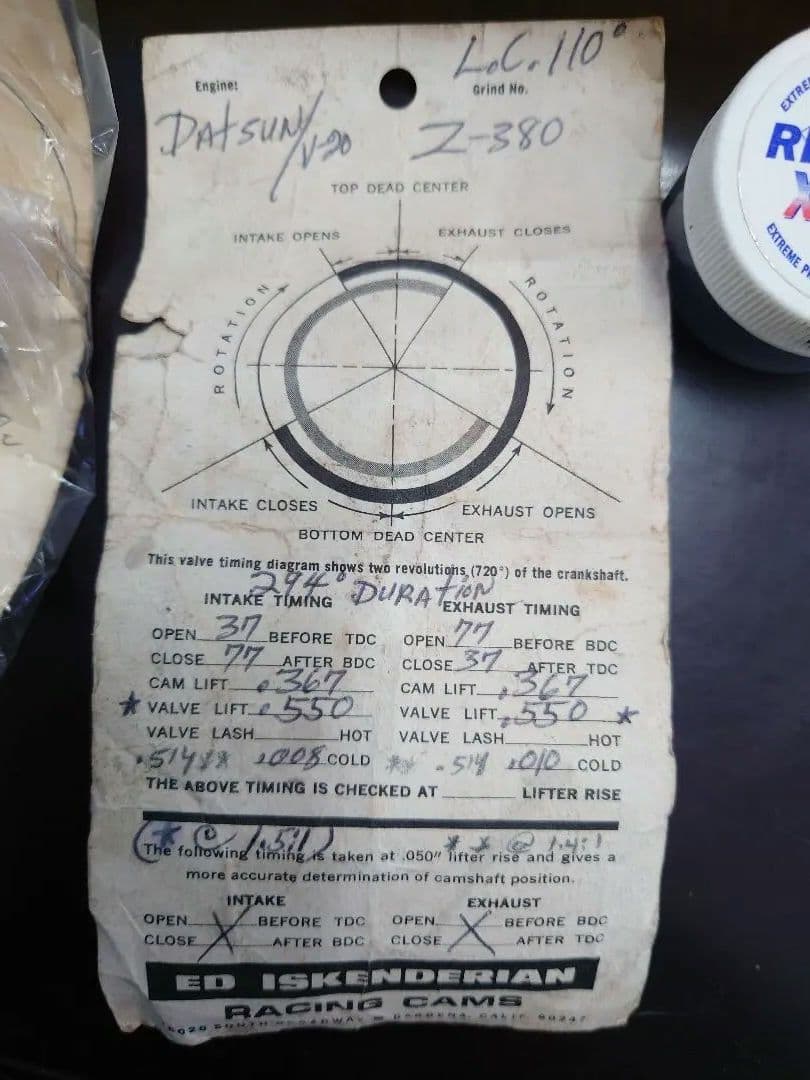 L.C. 110°
Engine:
Grind No.
DATSUN/V-20
Z-380
TOP DEAD CENTER
INTAKE OPENS
EXHAUST CLOSES
ROTATION
ROTATION
INTAKE CLOSES
EXHAUST OPENS
BOTTOM DEAD CENTER
This valve timing diagram shows two revolutions (720°) of the crankshaft.
294° DURATION
INTAKE TIMING EXHAUST TIMING
OPEN 37 BEFORE TDC OPEN 77 BEFORE BDC
CLOSE 77 AFTER BDC CLOSE 37 AFTER TDC
CAM LIFT .367 CAM LIFT .367
* VALVE LIFT .550 VALVE LIFT .550 *
VALVE LASH HOT VALVE LASH HOT
.514 ** .008 COLD ** .514 .010 COLD
THE ABOVE TIMING IS CHECKED AT LIFTER RISE
(* @ 1.5:1) ** @ 1.4:1
The following timing is taken at .050" lifter rise and gives a
more accurate determination of camshaft position.
INTAKE EXHAUST
OPEN X BEFORE TDC OPEN X BEFORE BDC
CLOSE AFTER BDC CLOSE AFTER TDC
ED ISKENDERIAN
RACING CAMS
SOUTH BROADWAY GARDENA, CALIF. 90247
EXTREME